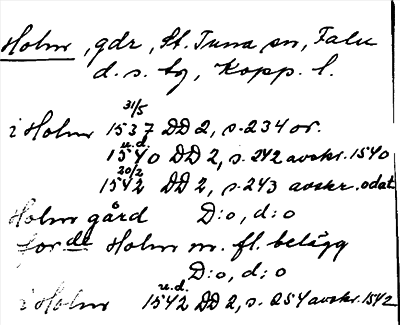 Holm, gdr, St. Tuna sn, Falu
d. s. bg, Kopp. l.
31/5
i Holm 1537 DD 2, s. 234 or.
u.d.
1540 DD 2, s. 242 avskr. 1540
20/2
1542 DD 2, s. 243 avskr. odat
Holm gård D:o, d:o
for de Holm m. fl. belägg
D:o, d:o
u.d.
i Holm 1542 DD 2, s. 254 avskr. 1542